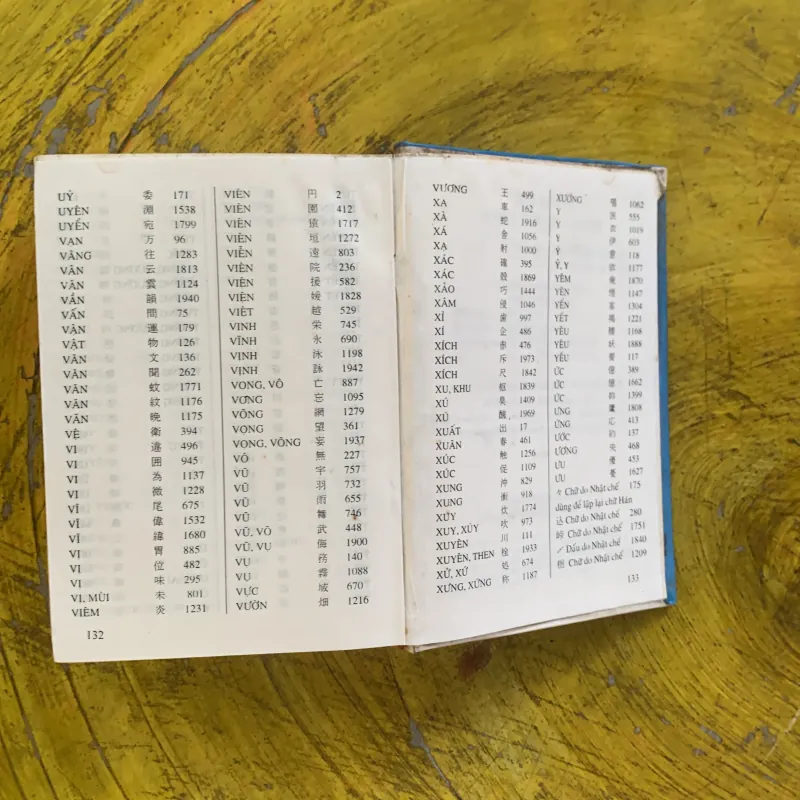 UỶ 委 171
UYÊN 淵 1538
UYỂN 宛 1799
VẠN 万 96
VÃNG 往 1283
VÂN 云 1813
VÂN 雲 1124
VẦN 韻 1940
VẤN 問 75
VẬN 運 179
VẬT 物 126
VĂN 文 136
VĂN 聞 262
VĂN 蚊 1771
VĂN 紋 1176
VÃN 晩 1175
VỆ 衛 394
VI 違 496
VI 囲 945
VI 為 1137
VI 微 1228
VĨ 尾 675
VĨ 偉 1532
VĨ 緯 1680
VỊ 胃 885
VỊ 位 482
VỊ 味 295
VỊ, MÙI 未 801
VIÊM 炎 1231
132
VIÊN 円 2
VIÊN 園 412
VIÊN 猿 1717
VIÊN 垣 1272
VIỄN 遠 803
VIỆN 院 236
VIỆN 援 582
VIỆN 媛 1828
VIỆT 越 529
VINH 栄 745
VĨNH 永 690
VỊNH 泳 1198
VỊNH 詠 1942
VONG, VÔ 亡 887
VONG 忘 1095
VÕNG 網 1279
VỌNG 望 361
VỌNG, VÔNG 妄 1937
VÔ 無 227
VŨ 宇 757
VŨ 羽 732
VŨ 雨 655
VŨ 舞 746
VŨ, VÕ 武 448
VŨ, VỤ 侮 1900
VỤ 務 140
VỤ 霧 1088
VỰC 域 670
VƯỜN 畑 1216
VƯƠNG 王 499
XA 車 162
XÀ 蛇 1916
XÁ 舎 1056
XẠ 射 1000
XÁC 確 395
XÁC 殻 1869
XẢO 巧 1444
XÂM 侵 1046
XỈ 歯 997
XÍ 企 486
XÍCH 赤 476
XÍCH 斥 1973
XÍCH 尺 1842
XU, KHU 枢 1839
XÚ 臭 1409
XÚ 醜 1969
XUẤT 出 17
XUÂN 春 461
XÚC 触 1256
XÚC 促 1109
XUNG 沖 829
XUNG 衝 918
XUY 炊 1774
XUY, XÚY 吹 973
XUYÊN 川 111
XUYÊN, THEN 栓 1933
XỬ, XỨ 処 674
XƯNG, XỨNG 称 1187
XƯỚNG 唱 1062
Y 医 555
Y 衣 1019
Y 伊 603
Ý 意 118
YẾM 1870
YẾN 宴 1304
YẾT 掲 1221
YÊU 腰 1168
YÊU 妖 1888
YẾU 要 117
ỨC 億 389
ỨC 憶 1662
ỨC 抑 1399
ƯNG 鷹 1808
ỨNG 応 413
ƯỚC 約 137
ƯƠNG 央 468
ƯU 優 453
ƯU 憂 1627
々 Chữ do Nhật chế 175
dùng để lập lại chữ Hán
込 Chữ do Nhật chế 280
峠 Chữ do Nhật chế 1751
Dấu do Nhật chế 1840
Chữ do Nhật chế 1209
133